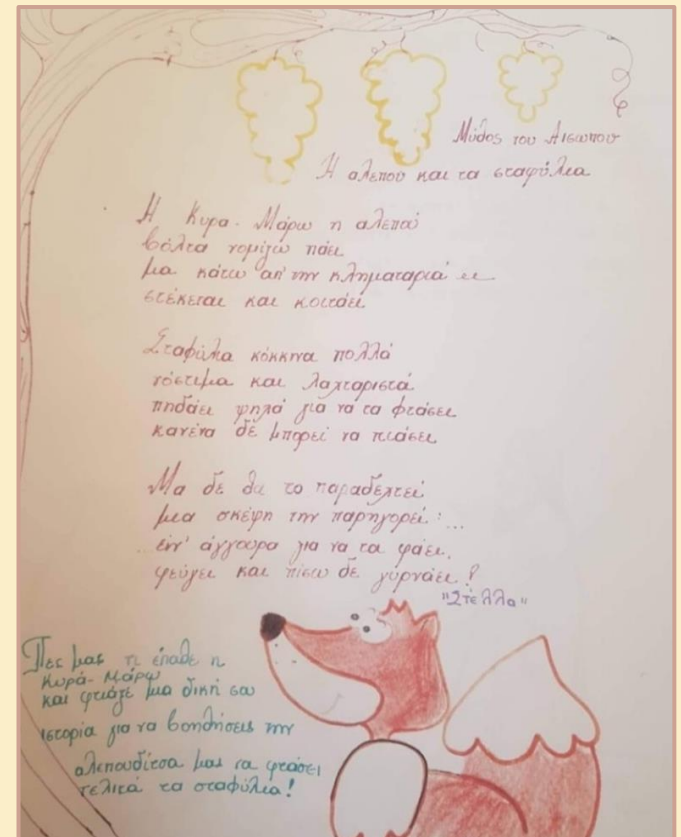 Μύθος του Αισωπου
Η αλεπου και τα σταφύλια
Η Κυρα-Μάρω η αλεπού
βόλτα νομίζω πάει
μα κάτω απ' την κληματαριά
στέκεται και κοιτάει
Σταφύλια κόκκινα πολλά
νόστιμα και λαχταριστά
πηδάει ψηλά για να τα φτάσει
κανένα δε μπορεί να πιάσει
Μα δε θα το παραδεχτεί
μια σκέψη την παρηγορεί: ...
ειν' άγγουρα για να τα φάει.
φεύγει και πίσω δε γυρνάει!
"Στέλλα"
Πες μας τι έπαθε η
Κυρά-Μάρω
και φτιάξε μια δική σου
ιστορία για να βοηθήσεις την
αλεπουδίτσα μας να φτάσει
τελικά τα σταφύλια!